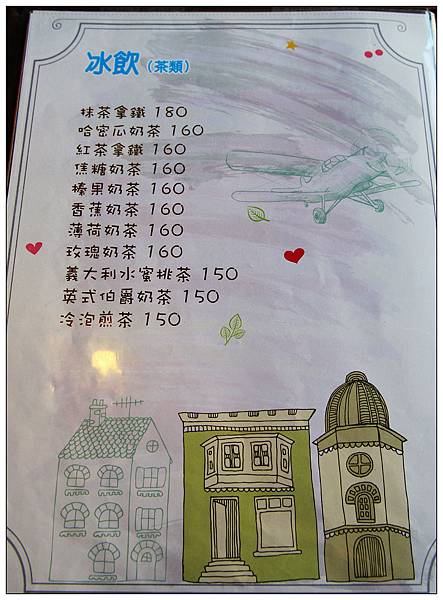 冰飲（茶類）
抹茶拿鐵 180
哈密瓜奶茶 160
紅茶拿鐵 160
焦糖奶茶 160
榛果奶茶 160
香蕉奶茶 160
薄荷奶茶 160
玫瑰奶茶 160
義大利水蜜桃茶 150
英式伯爵奶茶 150
冷泡煎茶 150